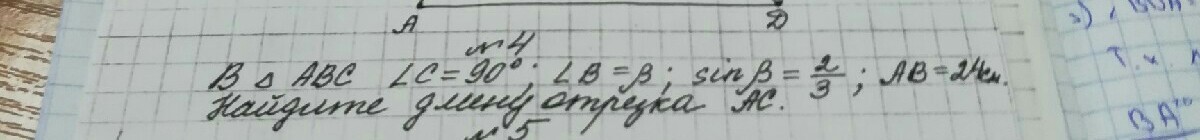 A D
№4
В △ ABC ∠C = 90°; ∠B = β; sin β = 2/3; AB = 24см.
Найдите длину отрезка AC.
№5
т.к.
BA